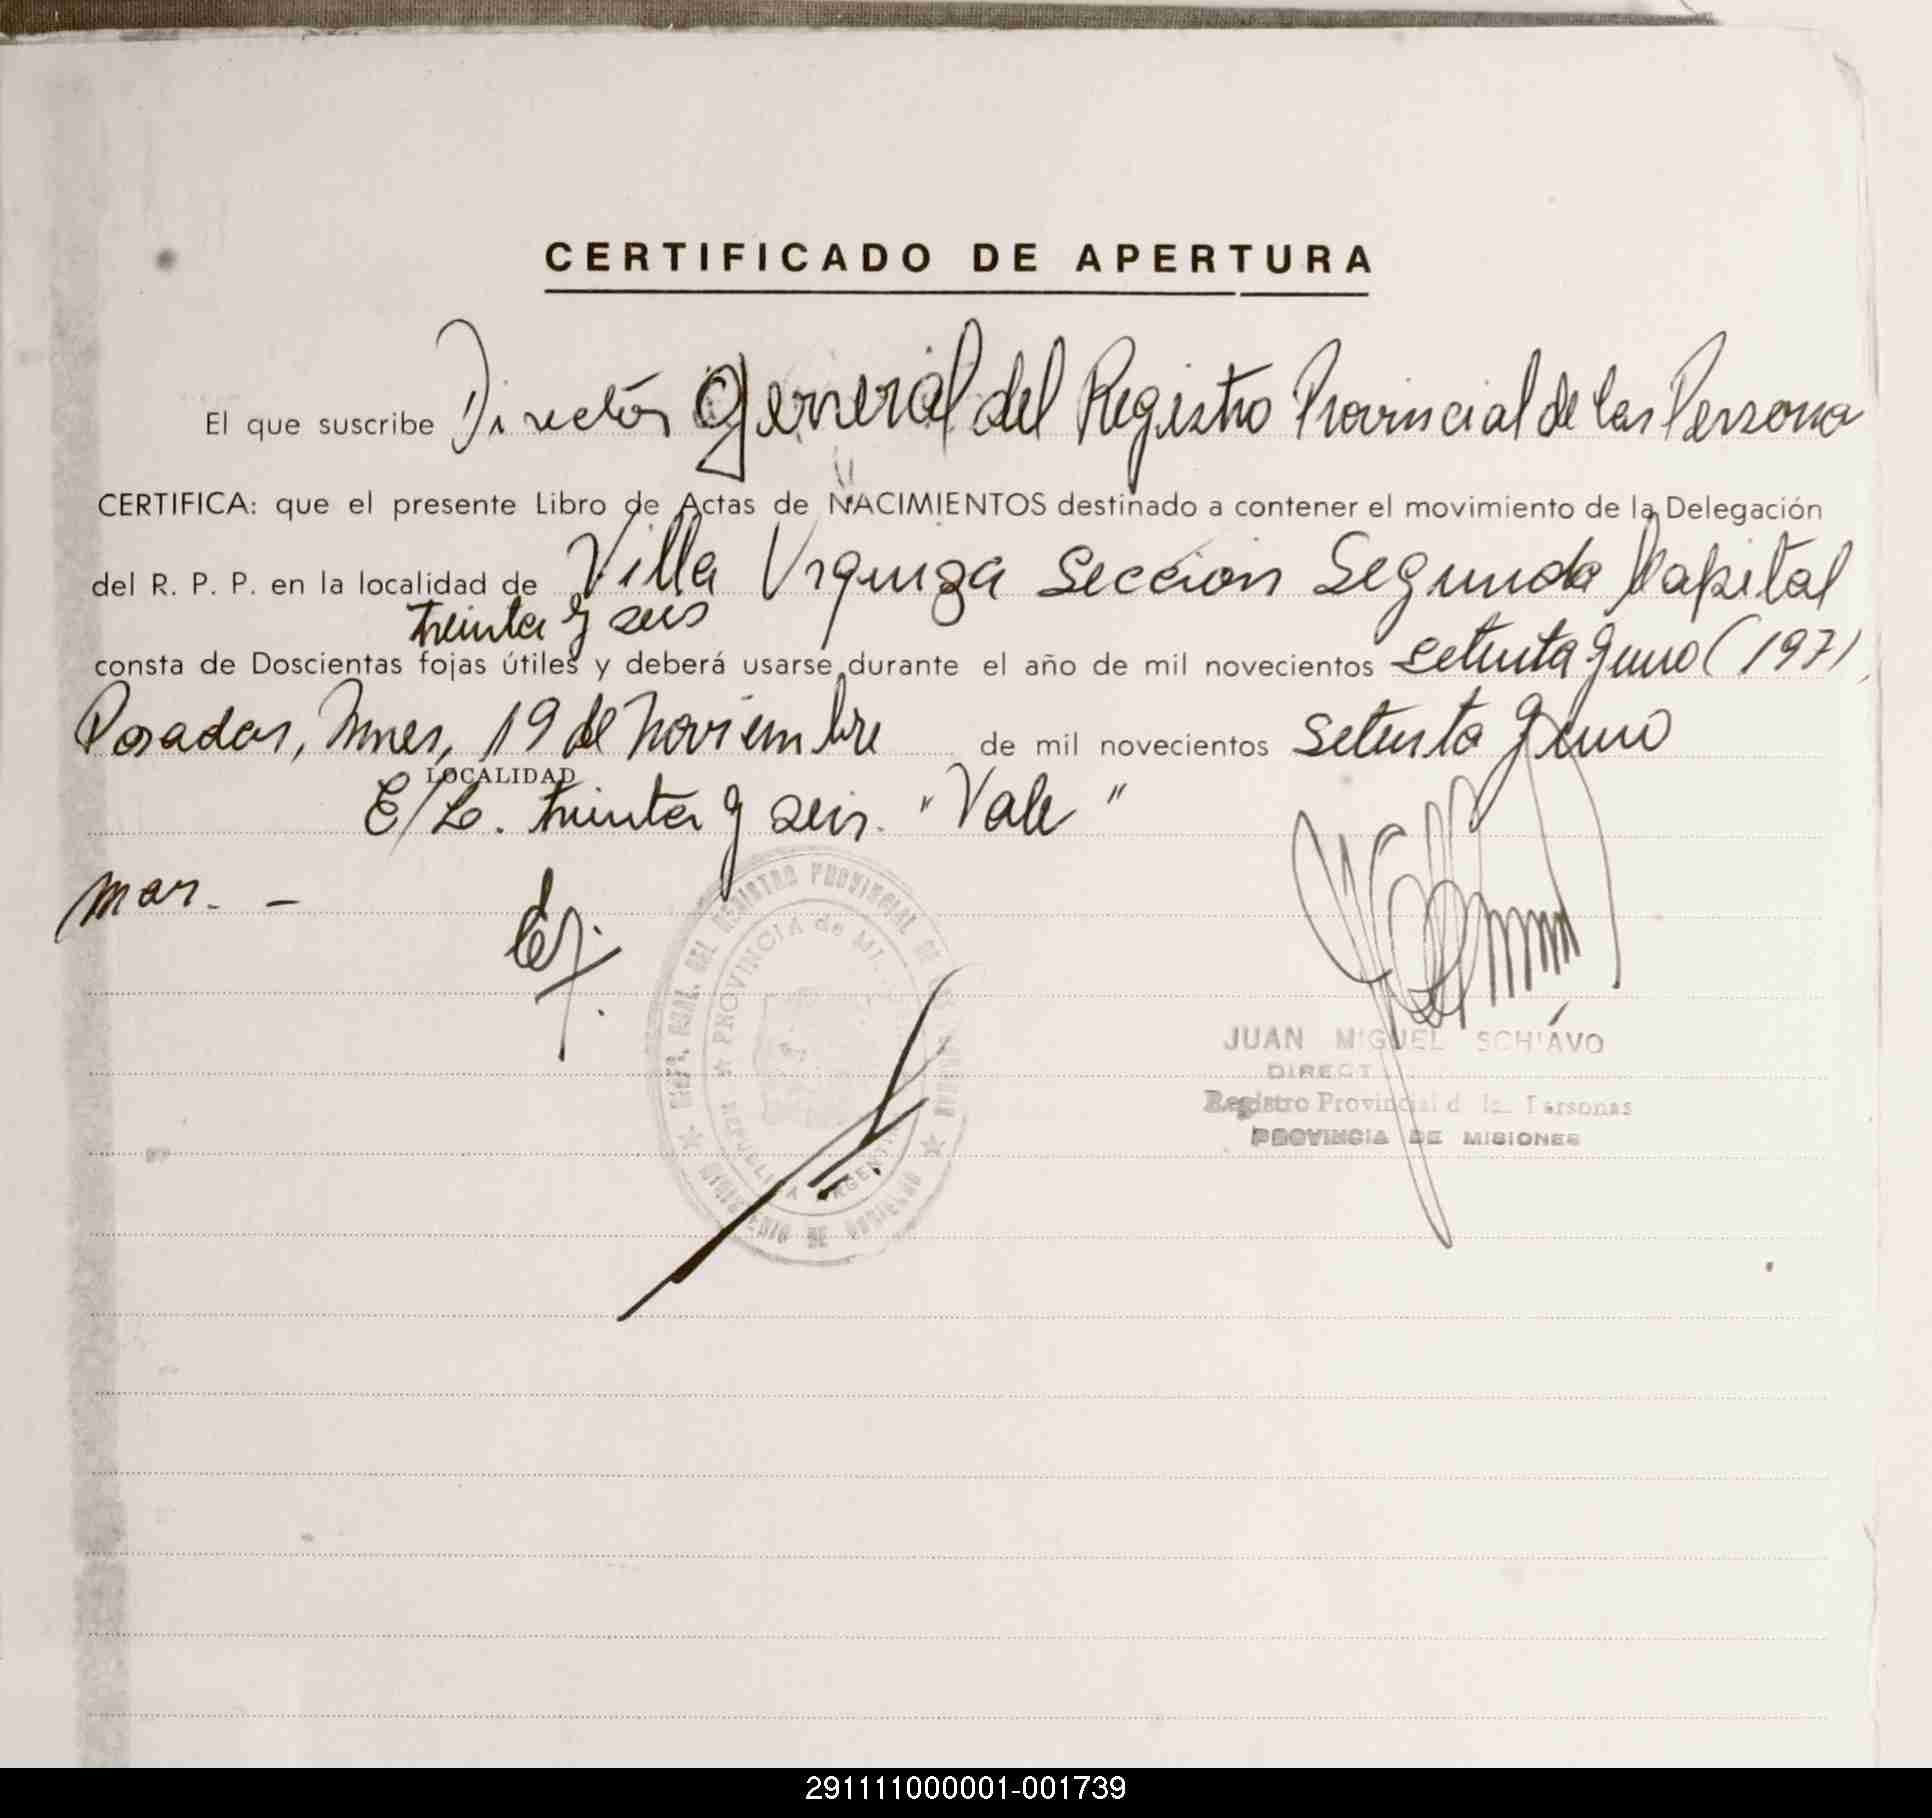 CERTIFICADO DE APERTURA
El que suscribe Director General del Registro Provincial de las Persona
CERTIFICA: que el presente Libro de Actas de NACIMIENTOS destinado a contener el movimiento de la Delegación
del R. P. P. en la localidad de Villa Urquiza Sección Segunda Capital
treinta y seis
consta de Doscientas fojas útiles y deberá usarse durante el año de mil novecientos setenta y uno (1971)
Posadas, Mnes, 19 de Noviembre de mil novecientos setenta y uno
LOCALIDAD
E/L. treinta y seis. "Vale"
mar. -
REGISTRO PROVINCIAL DE
PROVINCIA de MI
REPUBLICA ARGENTINA
MINISTERIO DE GOBIERNO
JUAN MIGUEL SCHIAVO
DIRECT
Registro Provincial d las Personas
PROVINCIA DE MISIONES
291111000001-001739